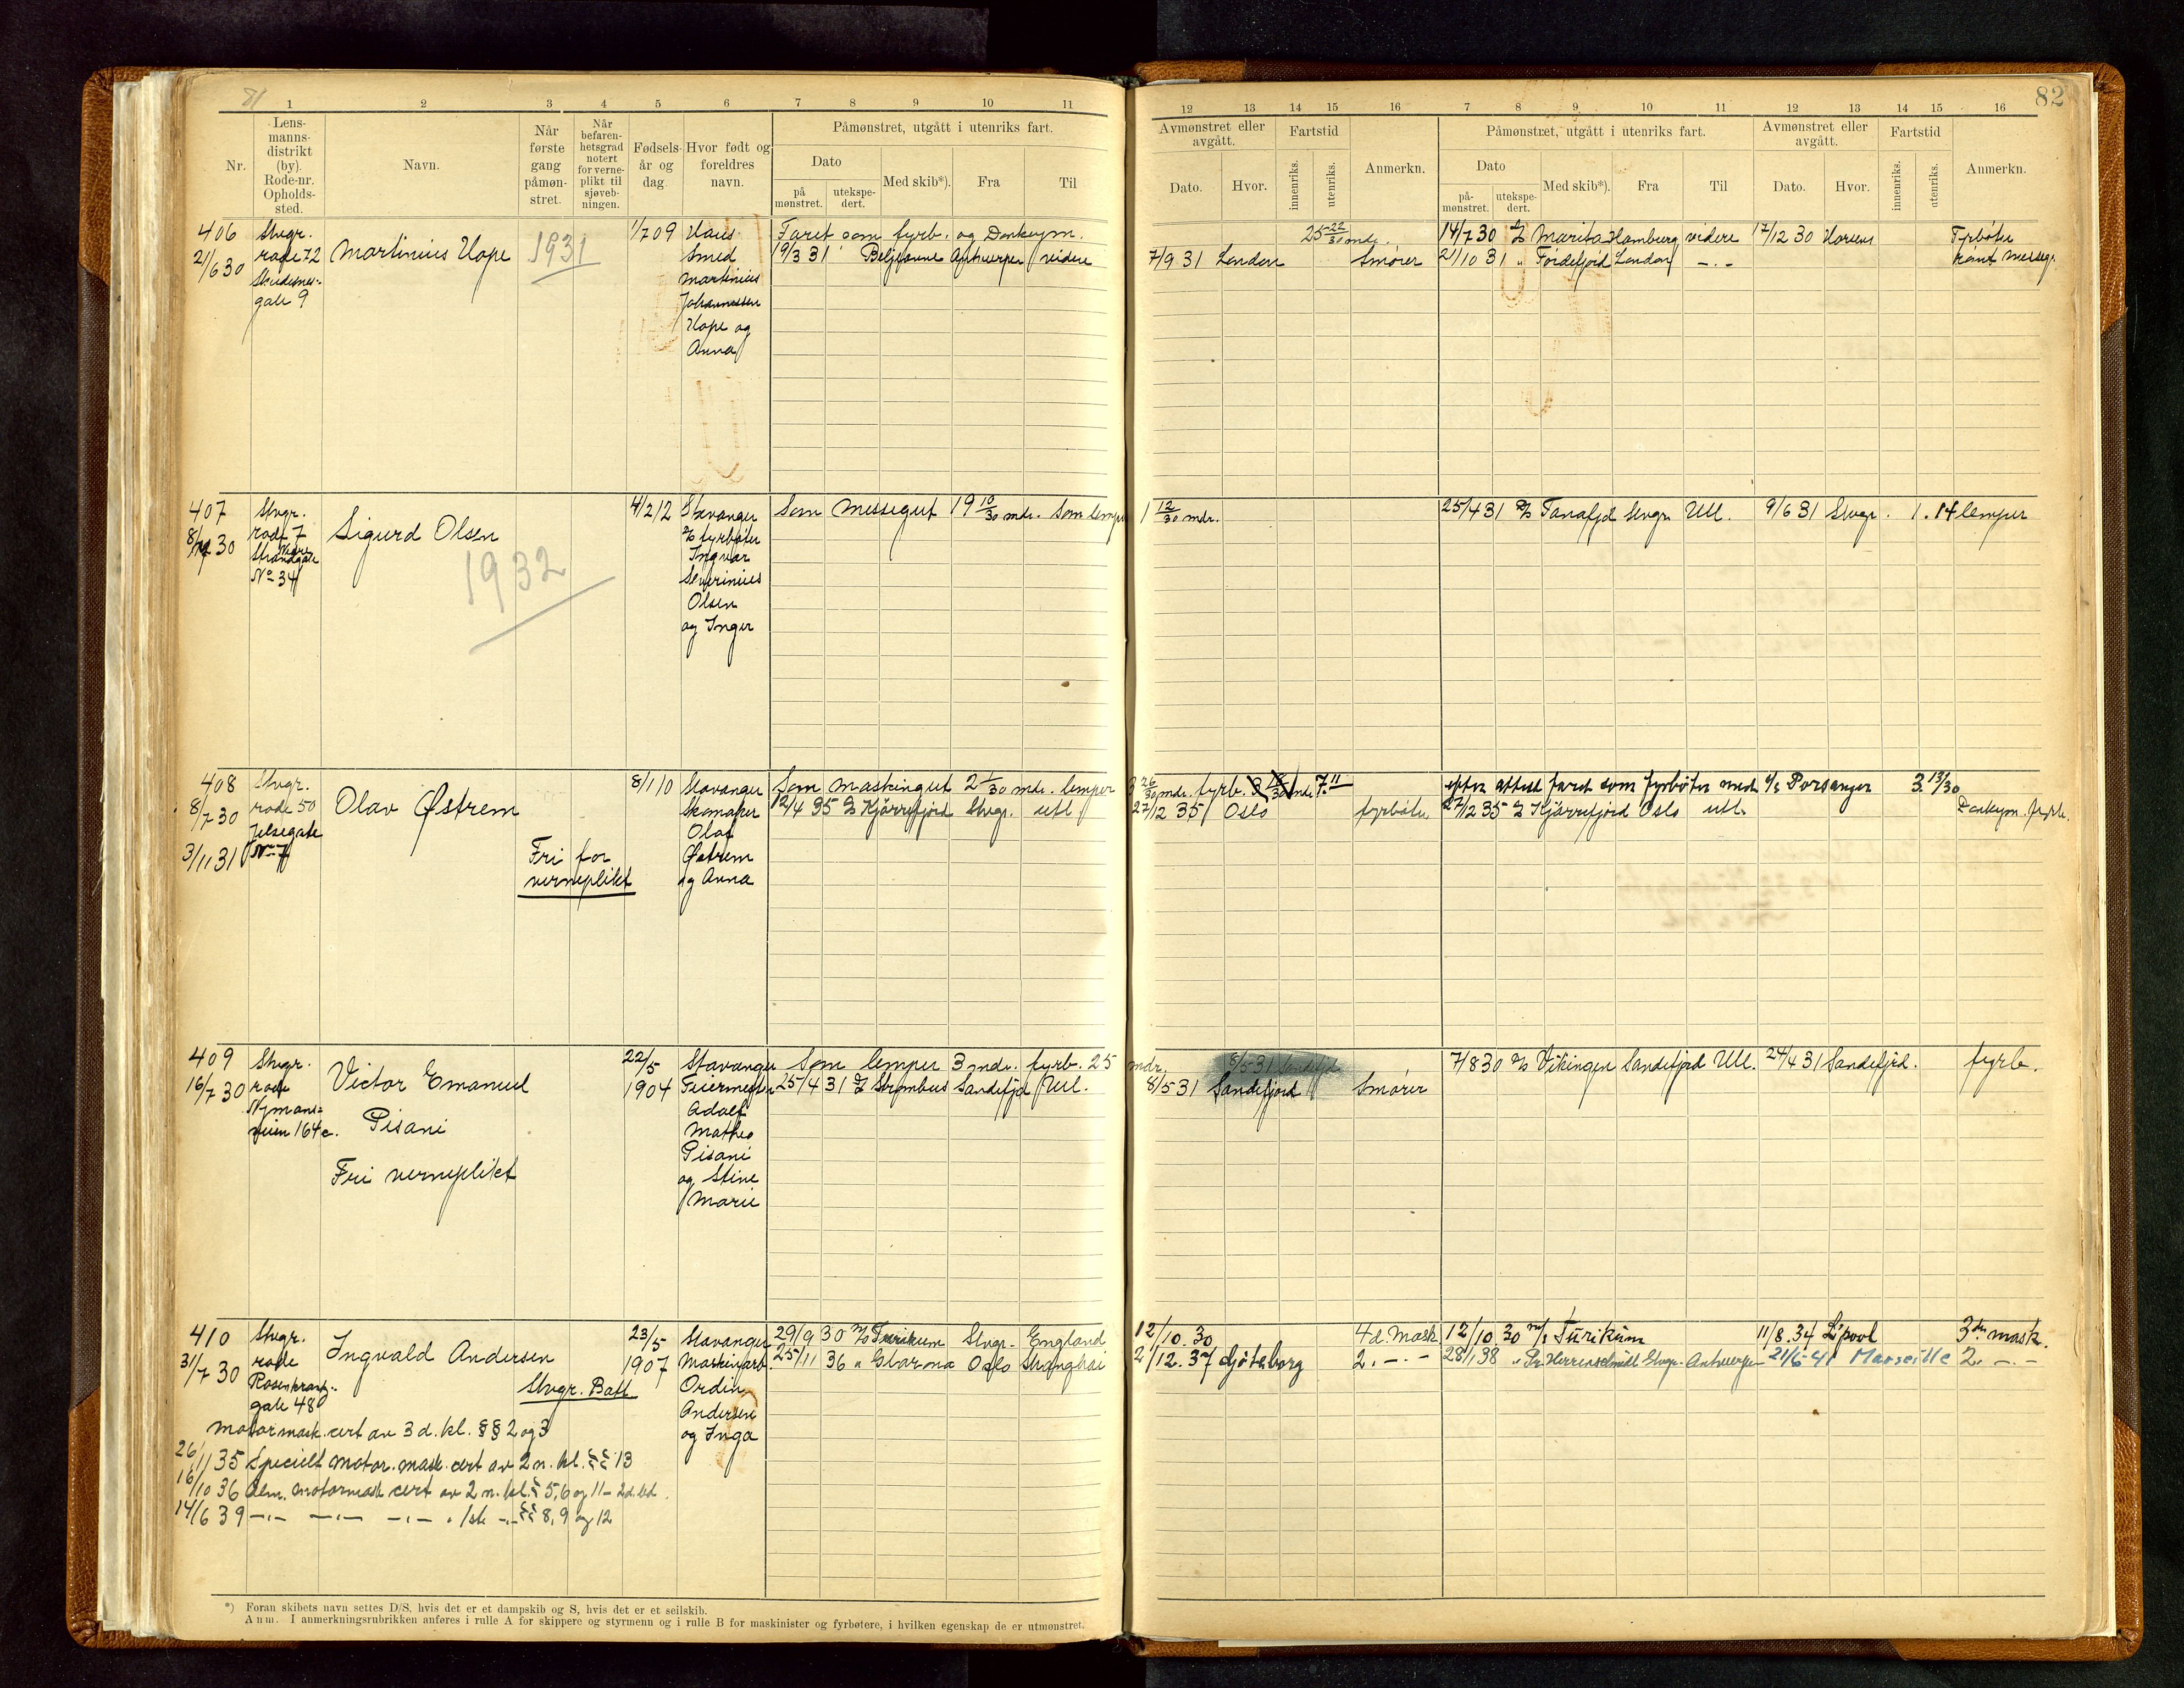 81
82
1 2 3 4 5 6 7 8 9 10 11
12 13 14 15 16 7 8 9 10 11 12 13 14 15 16
Nr.
Lens-
manns-
distrikt
(by).
Rode-nr.
Opholds-
sted.
Navn.
Når
første
gang
påmøn-
stret.
Når
befaren-
hetsgrad
notert
for verne-
plikt til
sjøveb-
ningen.
Fødsels-
år og
dag.
Hvor født og
foreldres
navn.
Påmønstret, utgått i utenriks fart.
Dato
på
mønstret.
utekspe-
dert.
Med skib*).
Fra
Til
Avmønstret eller
avgått.
Dato.
Hvor.
Fartstid
innenriks.
utenriks.
Anmerkn.
Påmønstret, utgått i utenriks fart.
Dato
på-
mønstret.
utekspe-
dert.
Med skib*).
Fra
Til
Avmønstret eller
avgått.
Dato.
Hvor.
Fartstid
innenriks.
utenriks.
Anmerkn.
406
21/6 30
Stvgr.
rode 72
Skudesnes-
gate 9
Martinius Hope
1931
1/7 09
Haus
Smed
Martinius
Johannessen
Hope og
Anna
Faret som fyrb. og Donkeym. 25 22/30 mdr.
19/3 31 Beljeanne Antwerpen videre 7/9 31 London Smører
14/7 30 Marita Hamburg videre 17/12 30 Horsens Fyrbøter
21/10 31 " Fordefjord London -"-
407
8/7 30
Stvgr.
rode 7
Strandgate
No 34
Sigurd Olsen
1932
4/2 12
Stavanger
fyrbøter
Ingvar
Severinius
Olsen
og Inger
Som messegut 19 10/30 mdr. Som lemper 1 12/30 mdr.
25/4 31 D/S Tanafjd Stvgr. Utl. 9/6 31 Stvgr. 1.14 lemper
408
8/7 30
3/11 31
Stvgr.
rode 50
Jelsegate
No 7
Olav Østrem
Fri for
verneplikt
8/1 10
Stavanger
Skomaker
Olaf
Østrem
og Anna
Som maskingut 2 1/30 mdr. lemper 3 26/30 mdr. fyrb. 7.11
12/4 35 Kjørrefjord Stvgr. utl 27/12 35 Oslo fyrbøter
efter attest faret som fyrbøter med D/S Porsanger 3.13/30
27/12 35 Kjørrefjord Oslo utl. Donkeym. fyrb.
409
16/7 30
Stvgr.
rode
Nymans-
veien 164c.
Victor Emanuel
Pisani
Fri verneplikt
22/5
1904
Stavanger
Feiermester
Adolf
Matheo
Pisani
og Stine
Marie
Som lemper 3 mdr. fyrb. 25 mdr.
25/4 31 Strombus Sandefjd Utl. 8/5 31 Sandefjord Smører
7/8 30 D/S Vikingen Sandefjord Utl. 24/4 31 Sandefjrd. fyrb.
410
31/7 30
Stvgr.
rode
Rosenkrantz-
gate 48
Ingvald Andersen
Stvgr. Batl
23/5
1907
Stavanger
Maskinarb.
Ordin
Andersen
og Inga
29/9 30 M/S Turikum Stvgr. England 12/10.30 4d. Mask
25/11 36 " Glarona Oslo Shanghai 2/12.37 Gjøteborg 2. -"-
12/10 30 M/S Turikum 11/8.34 L'pool 3die mask.
28/1 38 " Stvgr. Antwerpen 21/6-41 Marseille 2. -"-
Motormask. cert av 3 d. kl. §§ 2 og 3
26/11 35 Specielt motor. mask. cert av 2 n. kl. §§ 13
16/10 36 Alm. motormask cert av 2 n. kl. § 5, 6 og 11 - 2d. led.
14/6 39 -"- -"- -"- 1ste -"- §§ 8, 9 og 12
*) Foran skibets navn settes D/S, hvis det er et dampskib og S, hvis det er et seilskib.
Anm. I anmerkningsrubrikken anføres i rulle A for skippere og styrmenn og i rulle B for maskinister og fyrbøtere, i hvilken egenskap de er utmønstret.